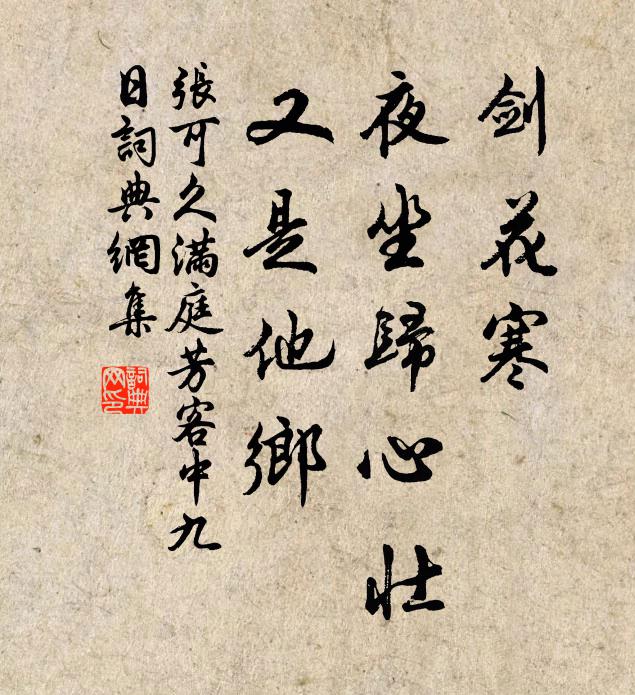 劍花寒
夜坐歸心壯
又是他鄉
張可久滿庭芳客中九
日詞典網集
詞典
网印